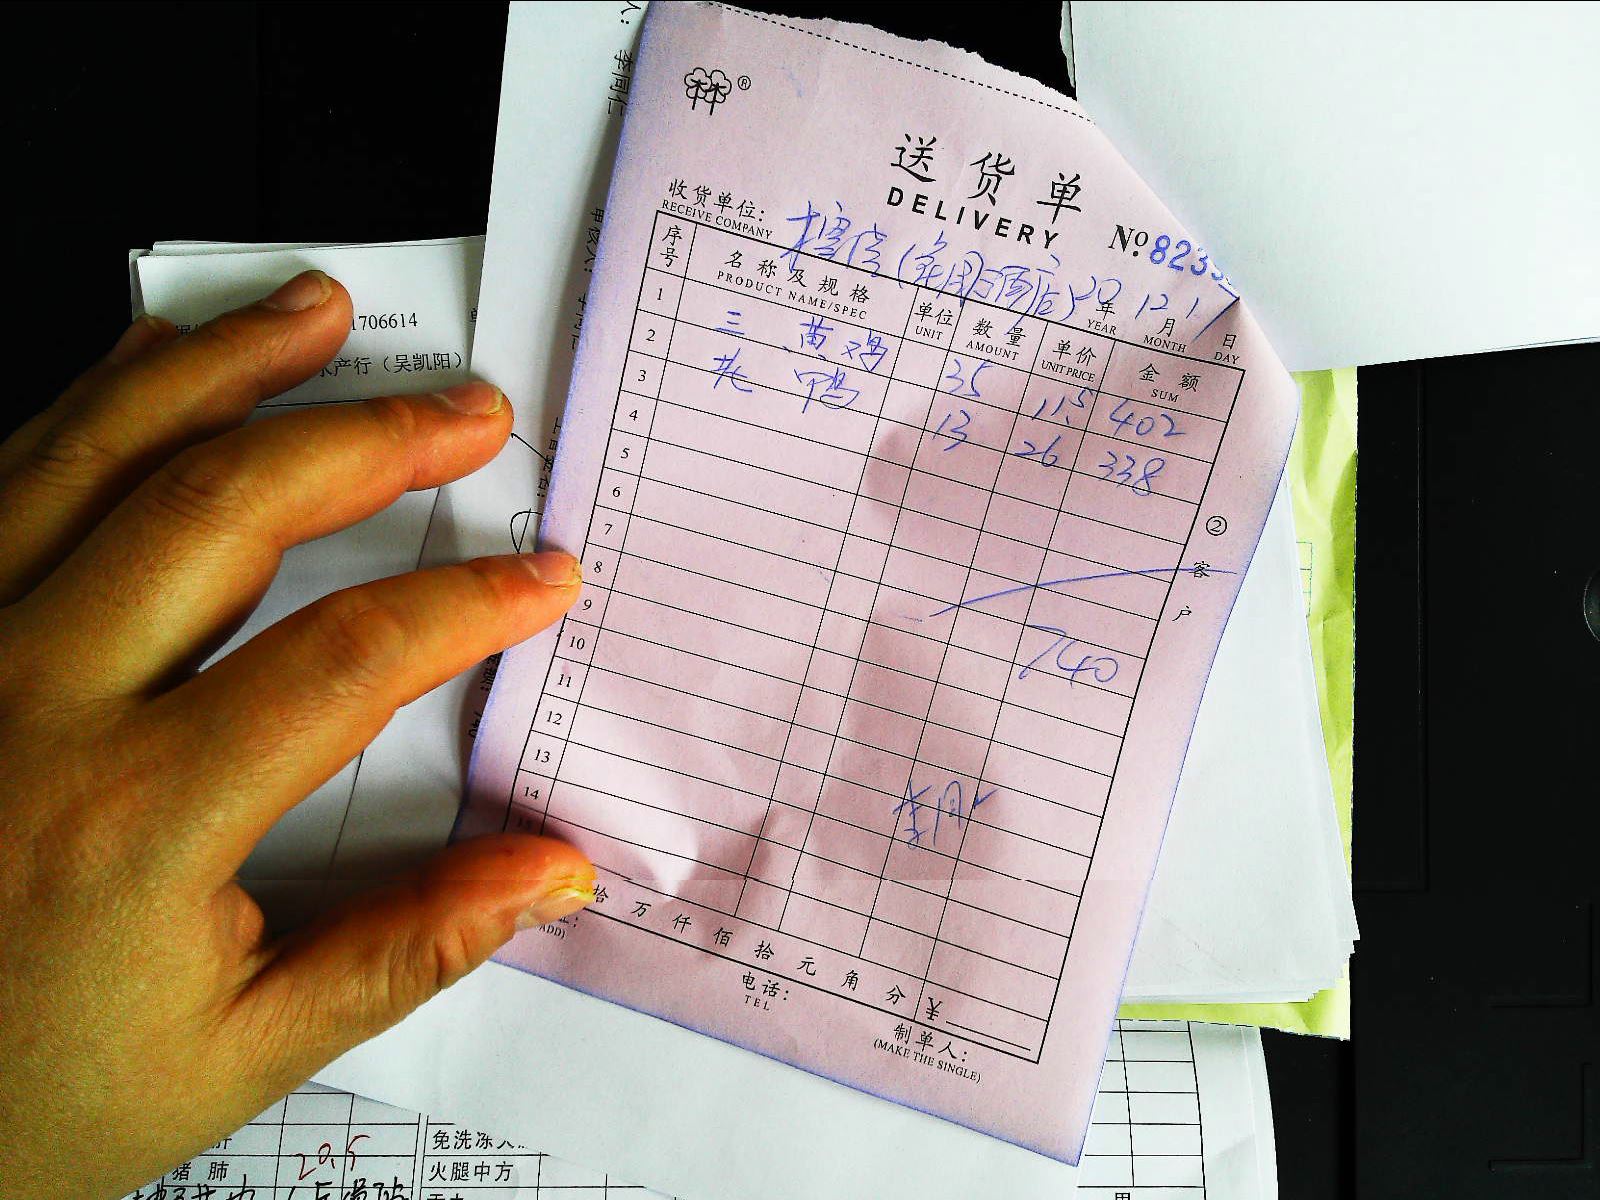 李同仁
®
送货单
DELIVERY
收货单位:
RECEIVE COMPANY
№ 823
20 年 12 月 17 日
YEAR MONTH DAY
序号 名称及规格 单位 数量 单价 金额
PRODUCT NAME/SPEC UNIT AMOUNT UNIT PRICE SUM
1 三黄鸡 35 11.5 402
2 老鸭 13 26 338
3
4
5
6
7
8
9
10
740
11
12
13
14
② 客户
拾万仟佰拾元角分 ¥
ADD)
电话:
TEL
制单人:
(MAKE THE SINGLE)
1706614
水产行（吴凯阳）
猪肺 20.5
免洗冻
火腿中方